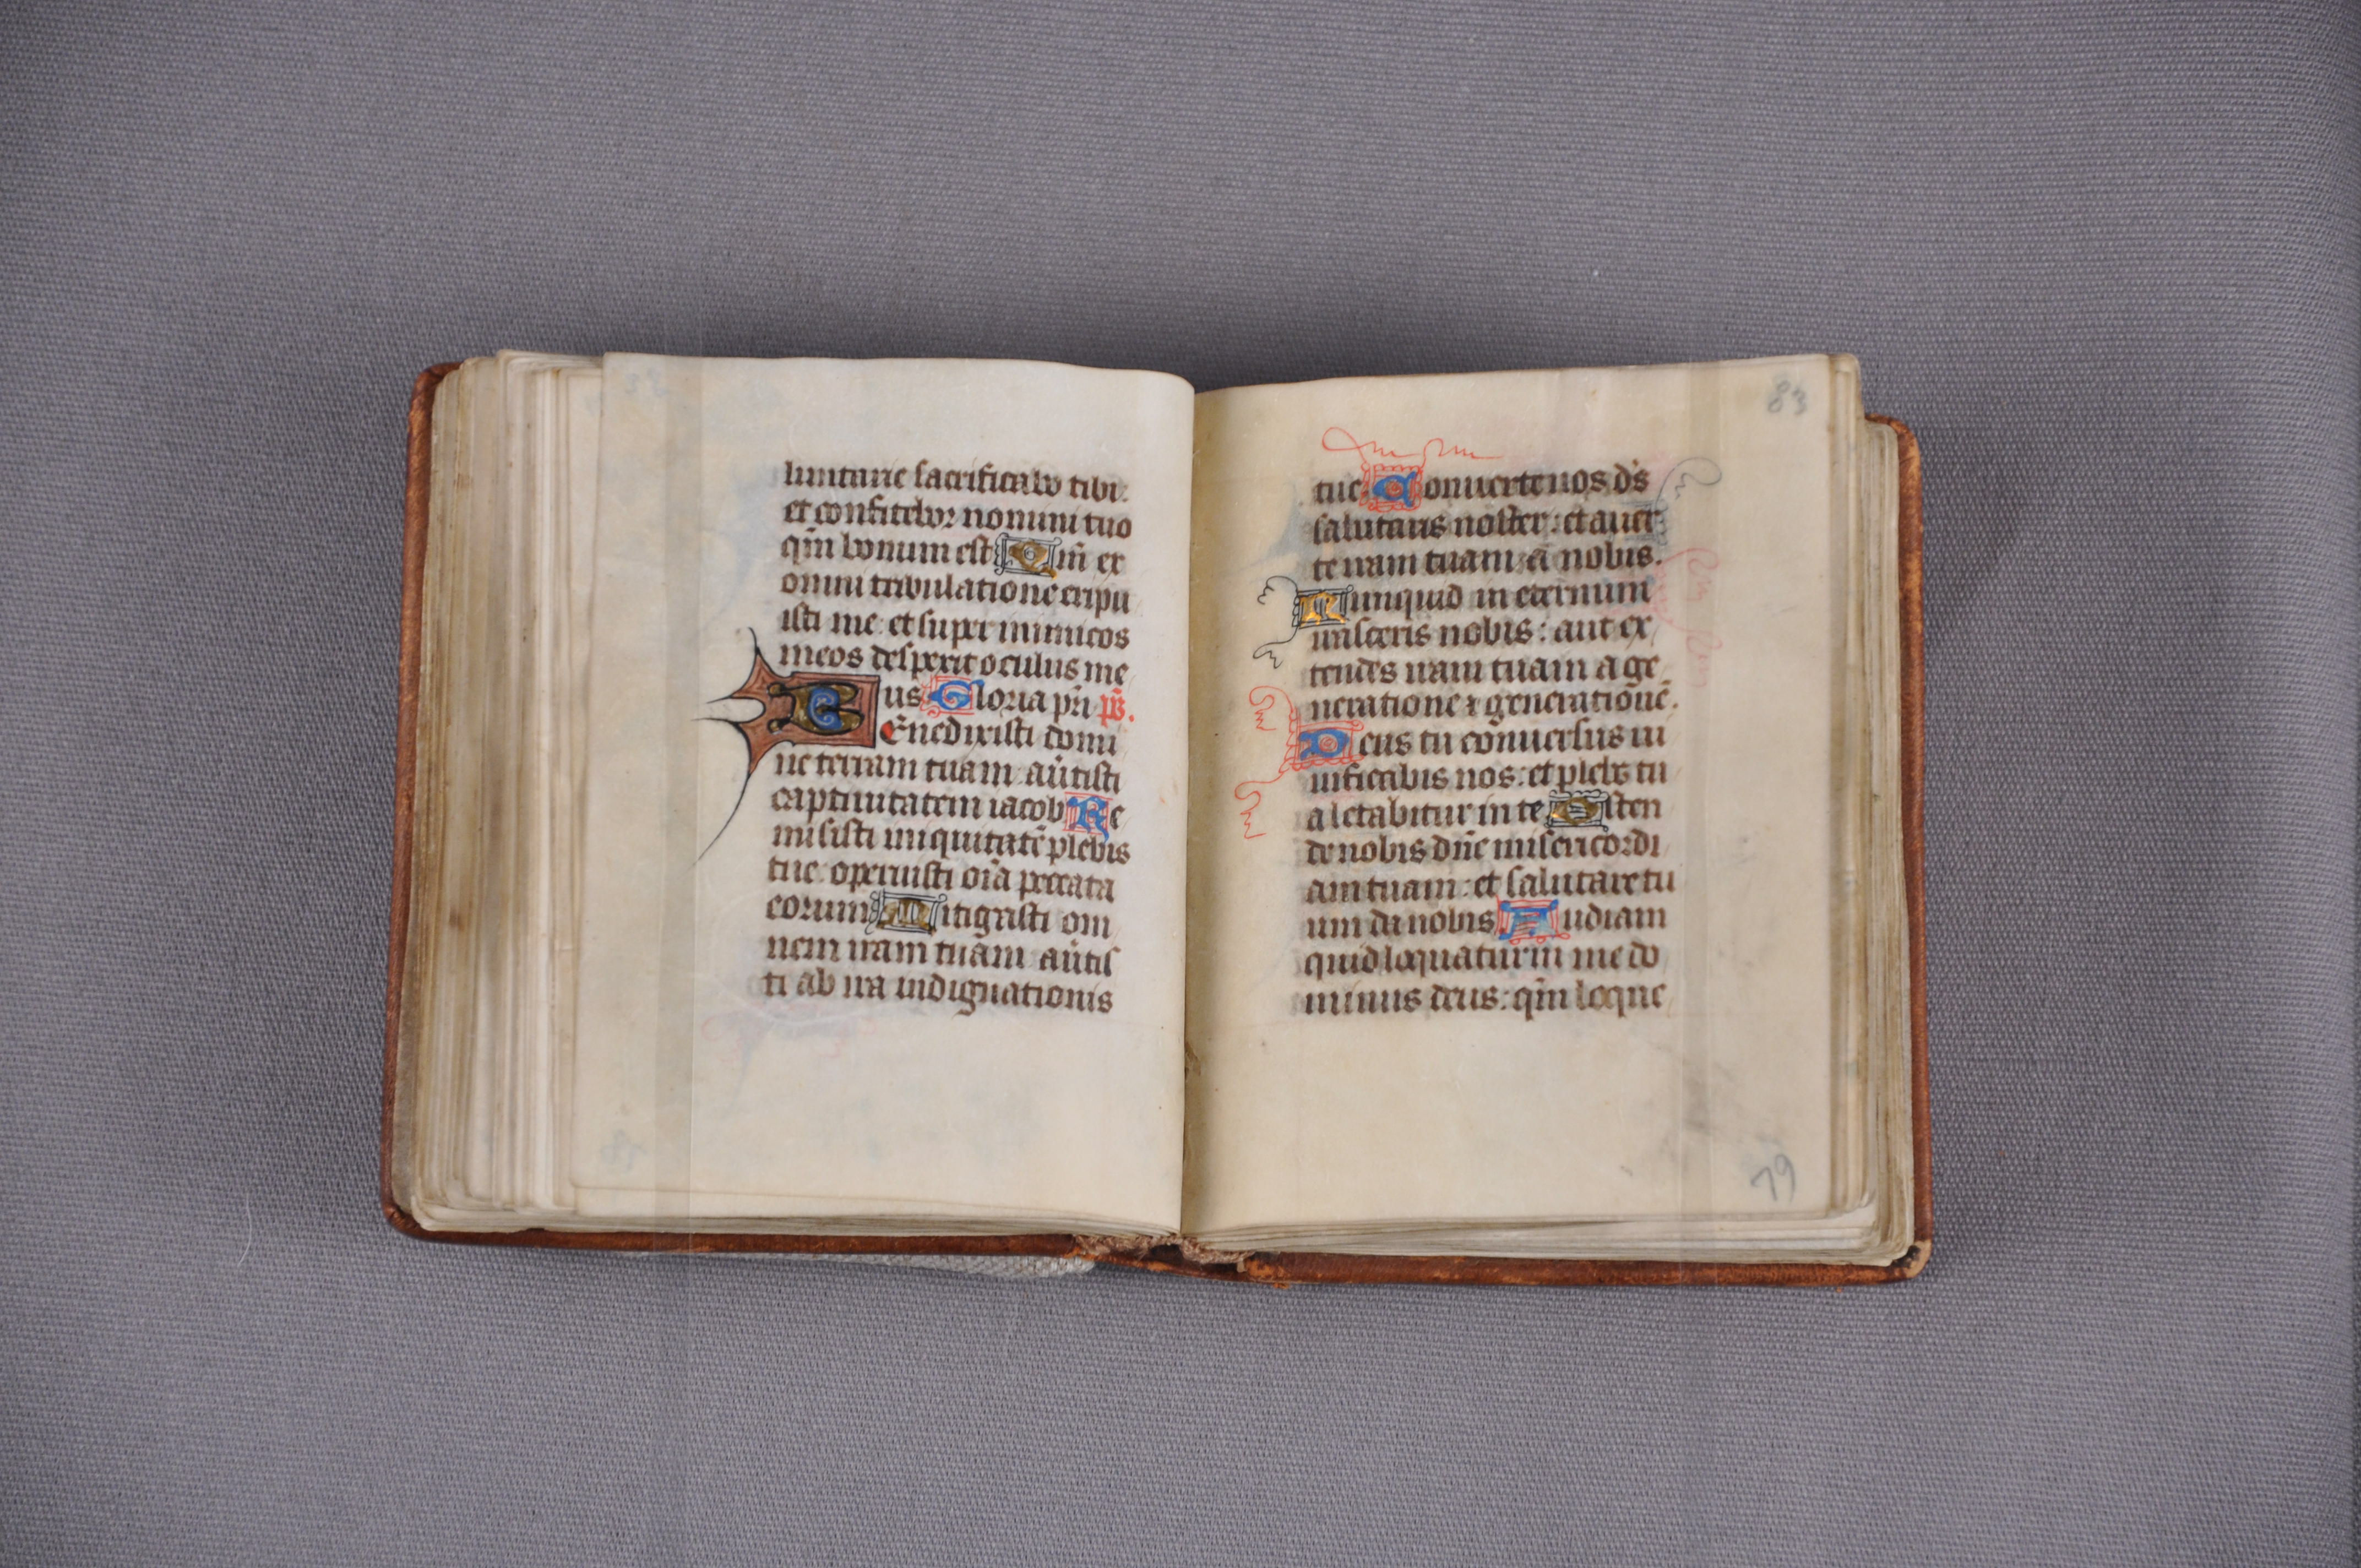 luntarie sacrificabo tibi:
et confitebor nomini tuo
qm̄ bonum est Qm̄ ex
omni tribulatione eripu
isti me: et super inimicos
meos despexit oculus me
us Gloria pr̄i p̄s.
Benedixisti domi
ne terram tuam: au̇tisti
captiuitatem iacob Re
misisti iniquitatē plebis
tue: operuisti oīa peccata
eorum Mitigasti om
nem iram tuam: au̇tis
ti ab ira indignationis
83
tue Conuerte nos d̄s
salutaris noster: et auer
te iram tuam a nobis.
Numquid in eternum
irasceris nobis: aut ex
tendes iram tuam a ge
neratione ⁊ generationē.
Deus tu cōuersus ui
uificabis nos: et plebs tu
a letabitur in te Osten
de nobis dn̄e misericordi
am tuam: et salutare tu
um da nobis Audiam
quid loquatur in me do
minus deus: qm̄ loque
79